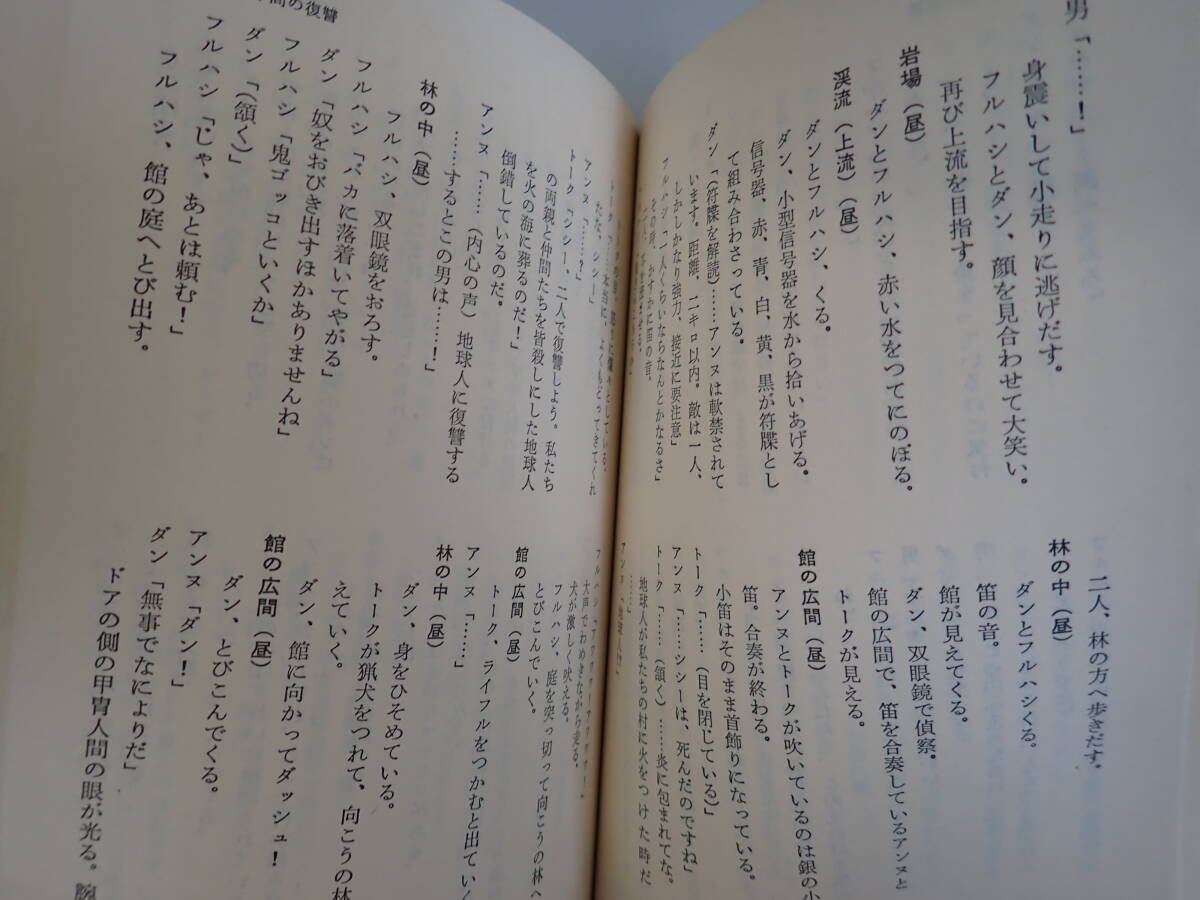 男「……！」
身震いして小走りに逃げだす。
フルハシとダン、顔を見合わせて大笑い。
再び上流を目指す。
岩場（昼）
ダンとフルハシ、赤い水をつてにのぼる。
渓流（上流）（昼）
ダンとフルハシ、くる。
ダン、小型信号器を水から拾いあげる。
信号器、赤、青、白、黄、黒が符牒とし
て組み合わさっている。
ダン「（符牒を解読）……アンヌは軟禁されて
います。距離、二キロ以内。敵は一人、
しかしかなり強力、接近に要注意」
フルハシ「一人くらいならなんとかなるさ」
その時、かすかに笛の音。
二人、林の方へ歩きだす。
林の中（昼）
ダンとフルハシくる。
笛の音。
館が見えてくる。
ダン、双眼鏡で偵察。
館の広間で、笛を合奏しているアンヌと
トークが見える。
館の広間（昼）
アンヌとトークが吹いているのは銀の小
笛。合奏が終わる。
小笛はそのまま首飾りになっている。
トーク「……（目を閉じている）」
アンヌ「……シシーは、死んだのですね」
トーク「……（頷く）……炎に包まれてな。
地球人が私たちの村に火をつけた時だ
……」
間の復讐
たな、シシー」
アンヌ「……？」
トーク「シシー、二人で復讐しよう。私たち
の両親と仲間たちを皆殺しにした地球人
を火の海に葬るのだ！」
倒錯しているのだ。
アンヌ「……（内心の声）地球人に復讐する
……するとこの男は……！」
林の中（昼）
フルハシ、双眼鏡をおろす。
フルハシ「バカに落着いてやがる」
ダン「奴をおびき出すほかありませんね」
フルハシ「鬼ゴッコといくか」
ダン「（頷く）」
フルハシ「じゃ、あとは頼む！」
フルハシ、館の庭へとび出す。
大声でわめきながら走る。
犬が激しく吠える。
フルハシ、庭を突っ切って向こうの林へ
とびこんでいく。
館の広間（昼）
トーク、ライフルをつかむと出ていく
アンヌ「……」
林の中（昼）
ダン、身をひそめている。
トークが猟犬をつれて、向こうの林
えていく。
ダン、館に向かってダッシュ！
館の広間（昼）
ダン、とびこんでくる。
アンヌ「ダン！」
ダン「無事でなによりだ」
ドアの側の甲冑人間の眼が光る。腕